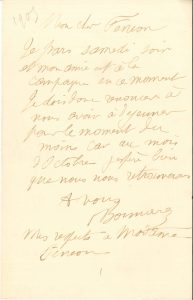 Mon cher Fénéon
Je pars samedi soir
et mon amie est à la
campagne en ce moment
Je dois donc renoncer à
vous avoir à déjeuner
pour le moment du
moins car au mois
d'Octobre j'espère bien
que nous nous retrouverons
A vous
Bonnard
Mes respects à Madame
Fénéon